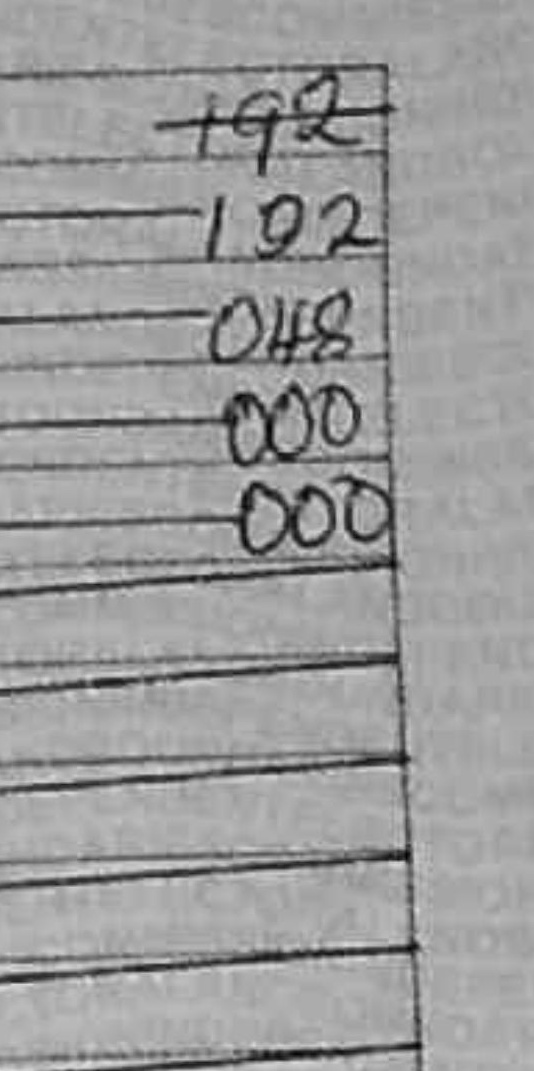 192
192
048
000
000